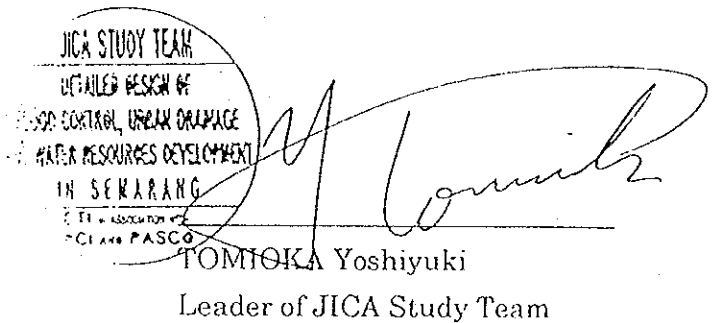 JICA STUDY TEAM
DETAILED DESIGN OF
FLOOD CONTROL, URBAN DRAINAGE
WATER RESOURCES DEVELOPMENT
IN SEMARANG
CTI IN ASSOCIATION
PCI AND PASCO
Y Tomioka
TOMIOKA Yoshiyuki
Leader of JICA Study Team